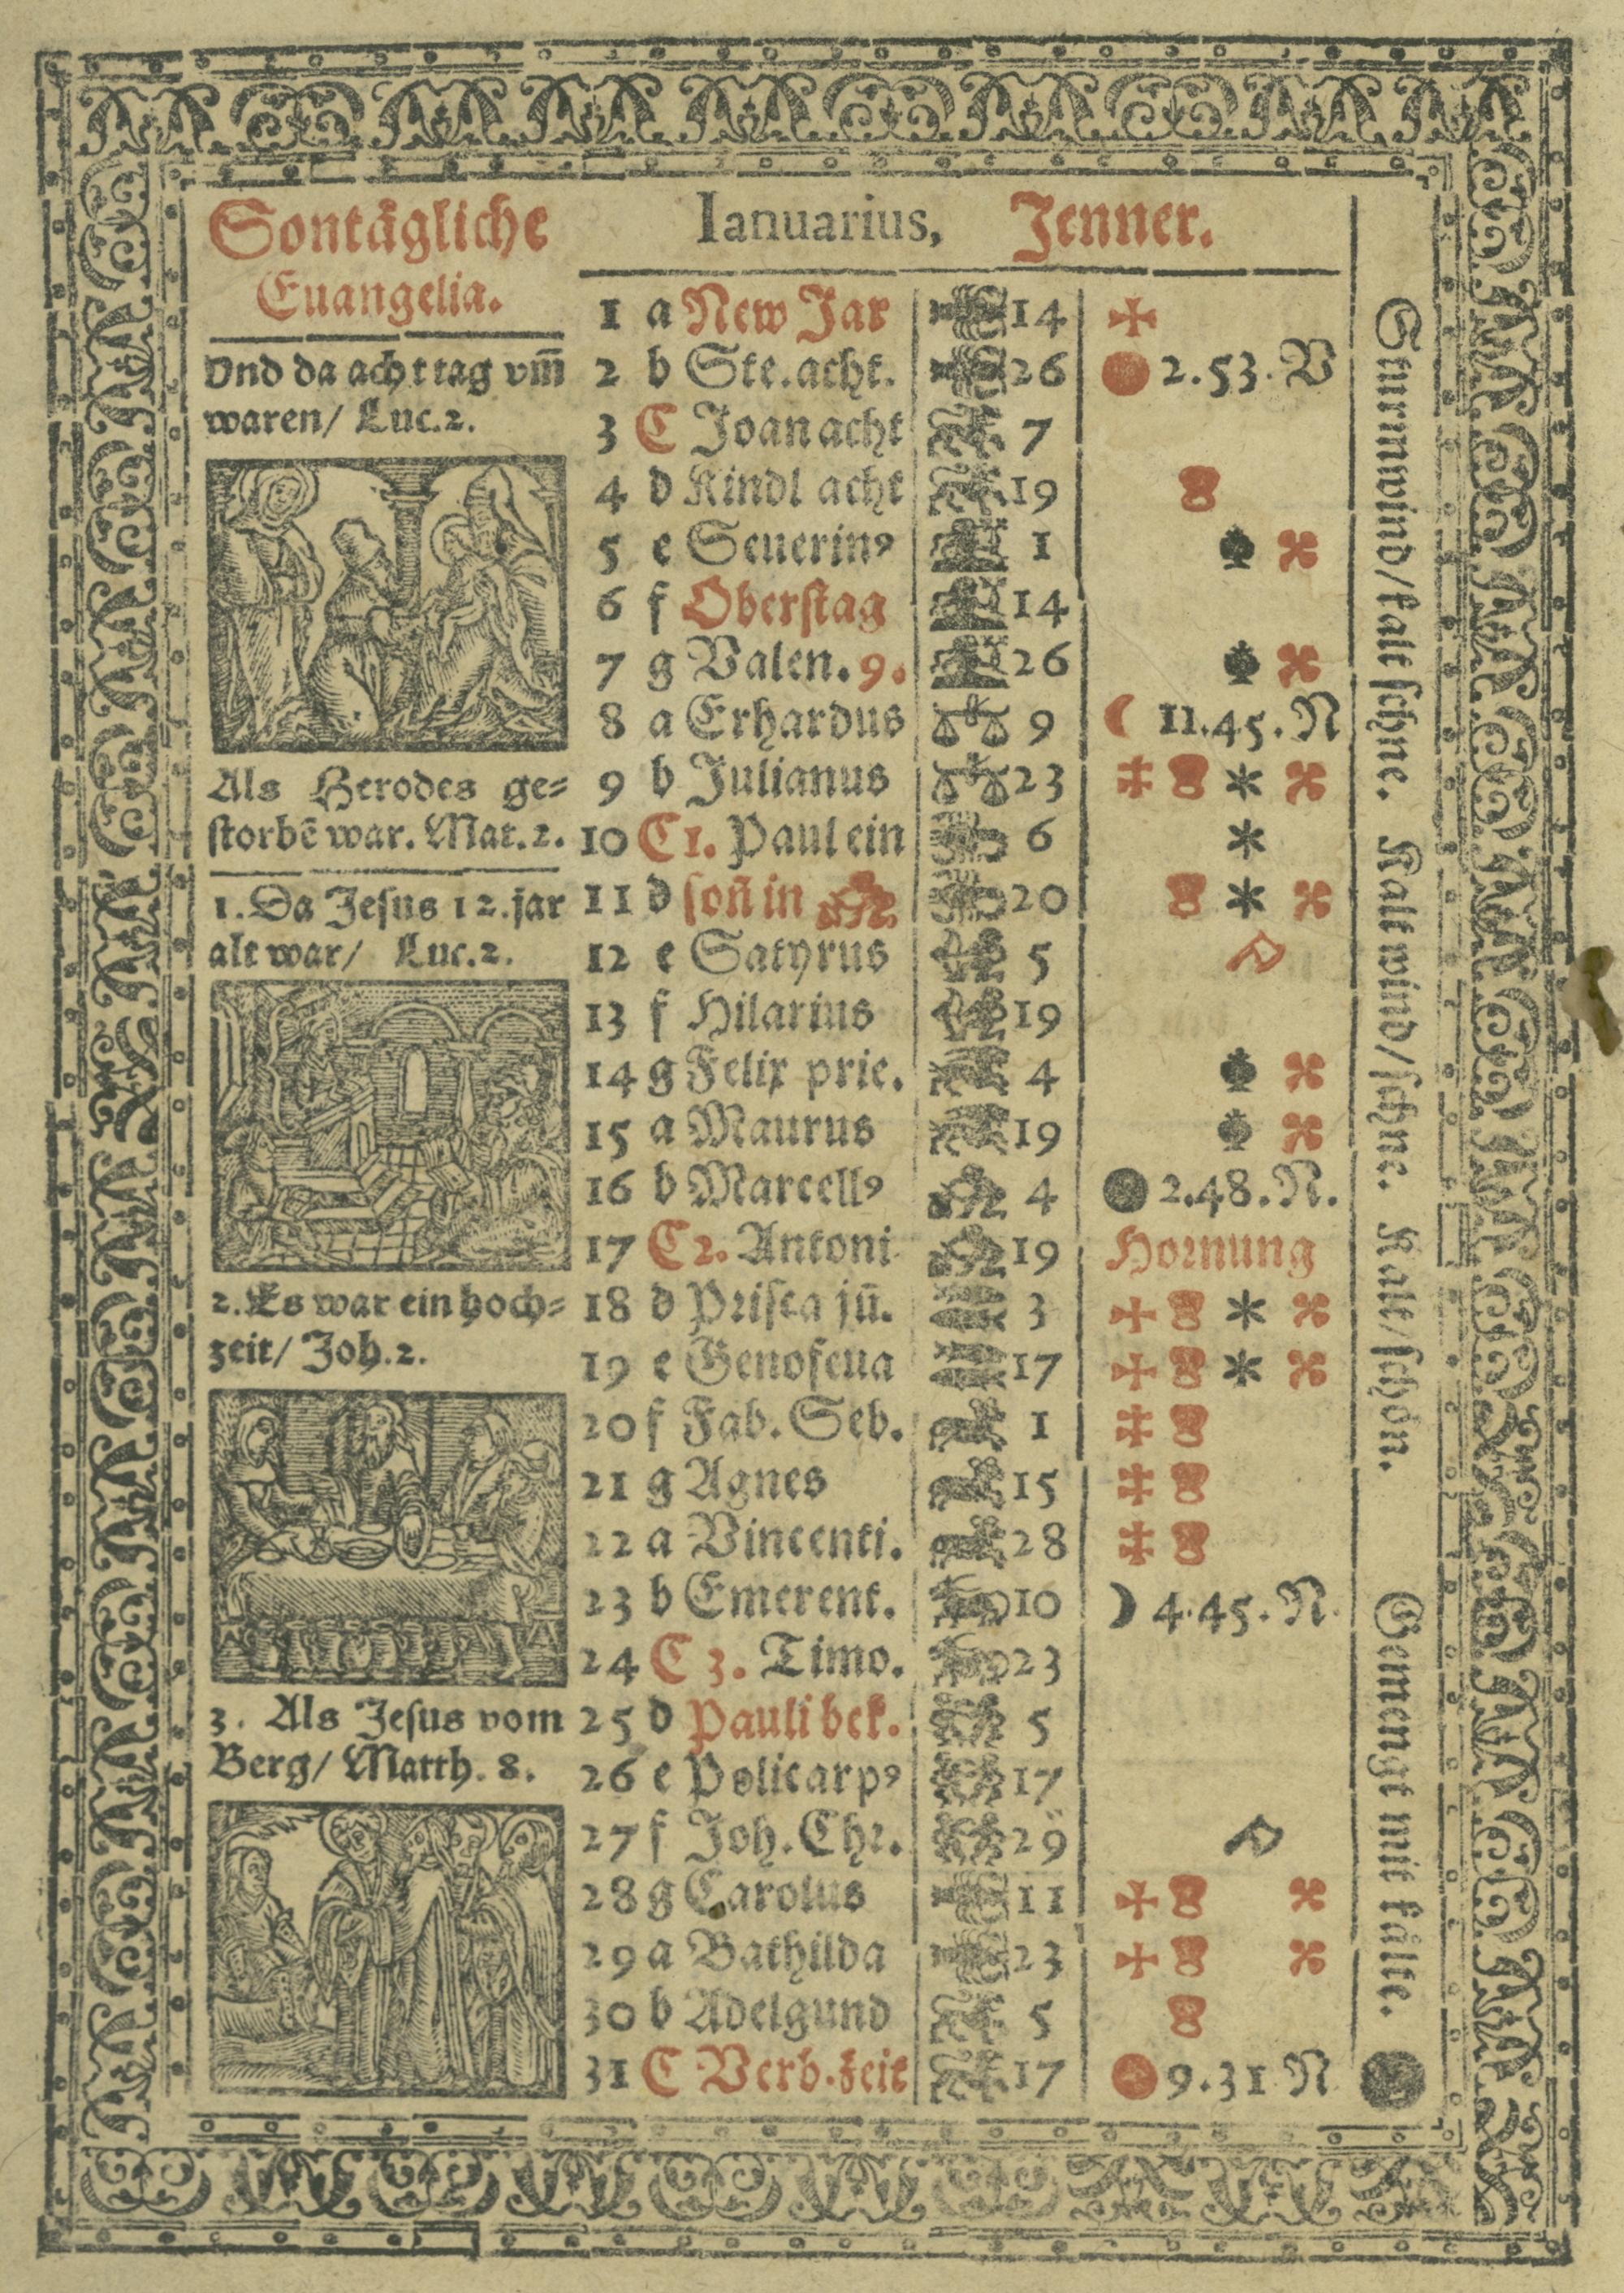 Sontägliche
Euangelia.
Vnd da acht tag vm̃
waren/ Luc.2.
Als Herodes ge=
storbẽ war. Mat.2.
1. Da Jesus 12. jar
alt war/ Luc.2.
2. Es war ein hoch=
zeit/ Joh.2.
3. Als Jesus vom
Berg/ Matth. 8.
Ianuarius, Jenner.
1 a New Jar 14 ✠
2 b Ste. acht. 26 2.53. V
3 C Joan acht 7
4 d Kindl acht 19
5 e Seuerinꝰ 1
6 f Oberstag 14
7 g Valen. 9. 26
8 a Erhardus 9 ☾ 11.45. N
9 b Julianus 23
10 C 1. Paul ein 6
11 d soñ in 20
12 e Satyrus 5
13 f Hilarius 19
14 g Felix prie. 4
15 a Maurus 19
16 b Marcellꝰ 4 2.48. N.
17 C 2. Antoni 19 Hornung
18 d Prisca jũ. 3
19 e Genofeua 17
20 f Fab. Seb. 1
21 g Agnes 15
22 a Vincenti. 28
23 b Emerent. 10 ☽ 4.45. N.
24 C 3. Timo. 23
25 d Pauli bek. 5
26 e Policarpꝰ 17
27 f Joh. Chr. 29
28 g Carolus 11
29 a Bathilda 23
30 b Adelgund 5
31 C Verb. zeit 17 9.31 N
Sturmwind/ kalt schyne. Kalt wind/ schyne. Kalt/ schön. Gemengt mit kälte.